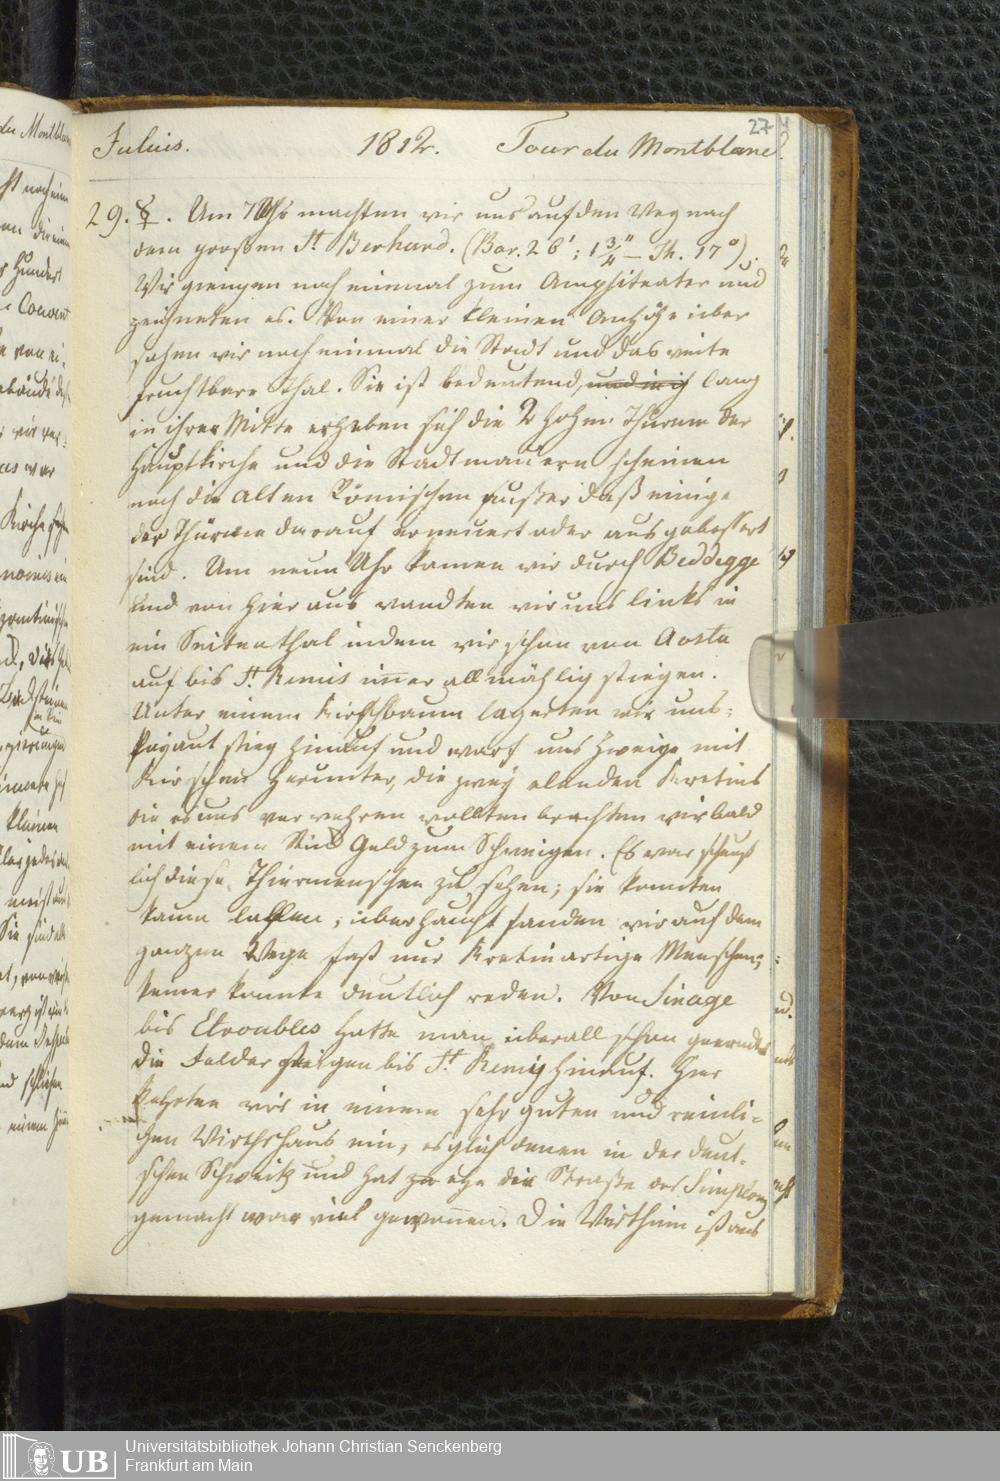 27
Julius. 1812. Tour du Montblanc.
29. ☿. Um 7 Uhr machten wir uns auf den Weg nach
dem großen St. Berhard. (Bar. 26'; 1 3/4'' — Th. 17°).
Wir giengen noch einmal zum Amphiteater und
zeichneten es. Von einer kleinen Anhöhe über
sahen wir noch einmal die Stadt und das weite
fruchtbare Thal. Sie ist bedeutend, lang
in ihrer Mitte erheben sich die 2 hohen Thürme der
Hauptkirche und die Stadtmauern scheinen
noch die alten Römischen außer daß einige
der Thürme darauf erneuert oder ausgebessert
sind. Um neun Uhr kamen wir durch
und von hier aus wandten wir uns links in
ein Seitenthal indem wir schon von Aosta
auf bis St. Remis im̅er allmählig stiegen.
Unter einem Kirschbaum lagerten wir uns:
stieg hinauf und warf uns Zweige mit
Kirschen herunter, die zwey elenden Kretins
die es uns verwehren wollten brachten wir bald
mit einem Stück Geld zum Schweigen. Es war scheuß
lich diese Thiermenschen zu sehen; sie konnten
kaum lallen; überhaupt fanden wir auf dem
ganzen Wege fast nur Kretinartige Menschen;
keiner konnte deutlich reden. Von
bis Etroubles hatte man überall schon geerndet
die Felder steigen bis St. Remy hinauf. Hier
kehrten wir in einem sehr guten und reinli-
chen Wirthshaus ein, es glich denen in der deut-
schen Schweitz und hat ehe die Straße des Simplons
gemacht war viel gewon̅en. Die Wirthin ist aus
UB
Universitätsbibliothek Johann Christian Senckenberg
Frankfurt am Main